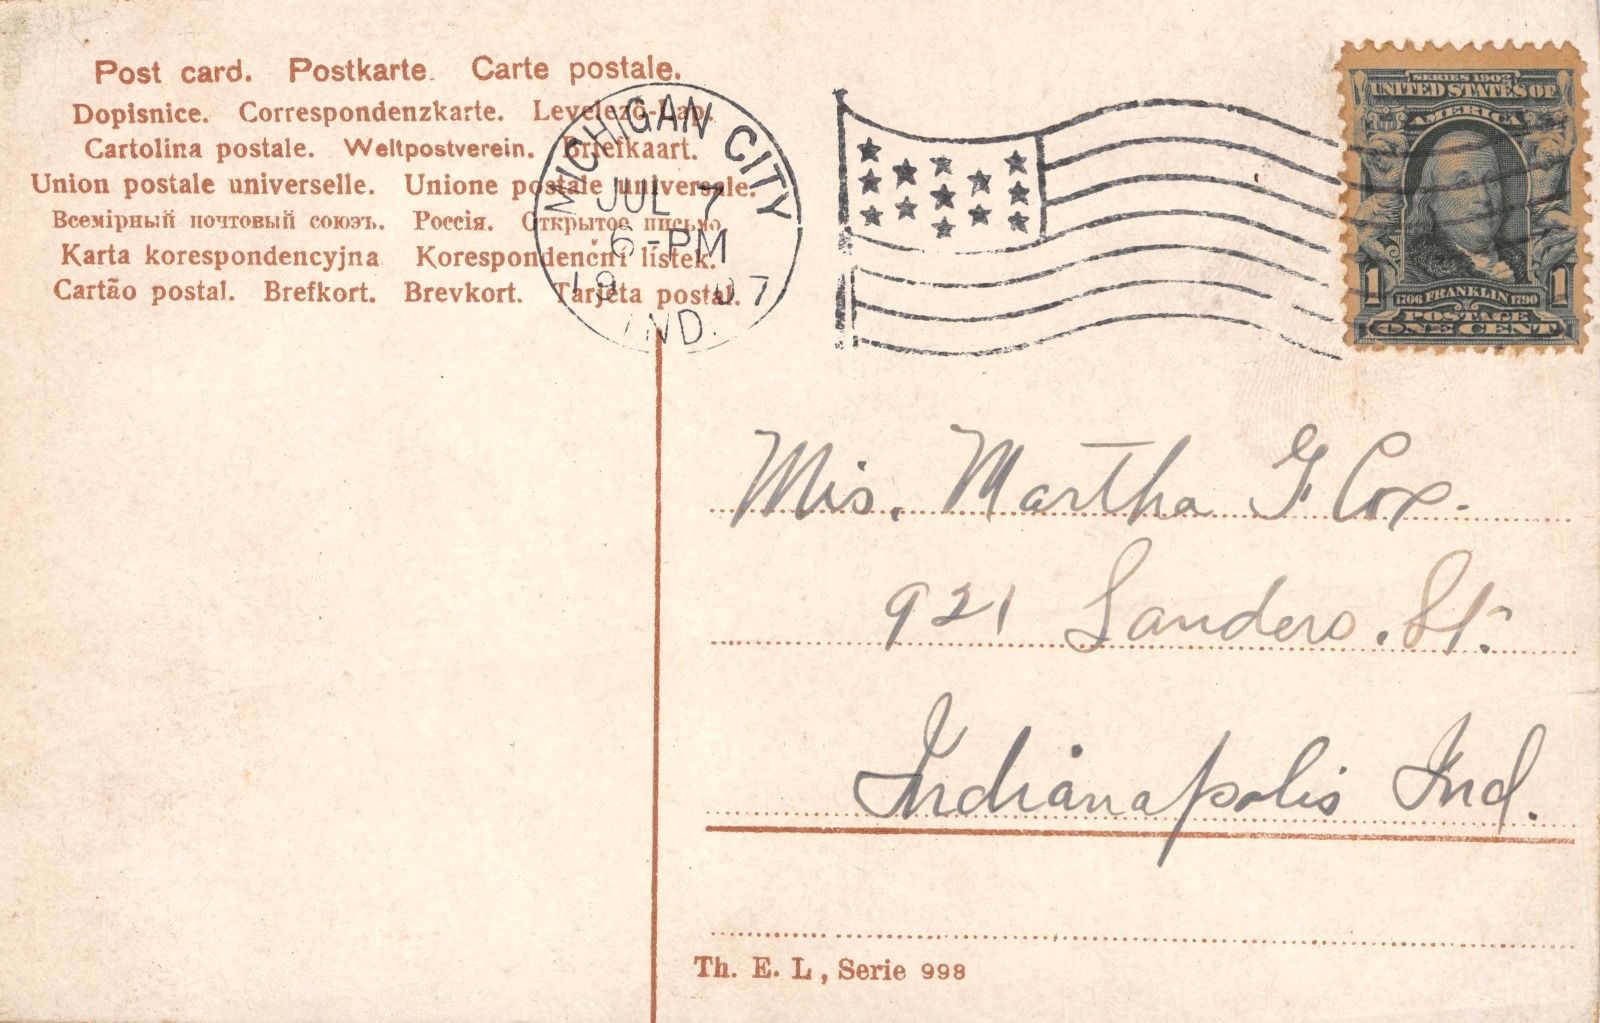 Post card. Postkarte. Carte postale.
Dopisnice. Correspondenzkarte. Levelező-Lap.
Cartolina postale. Weltpostverein. Briefkaart.
Union postale universelle. Unione postale universale.
Всемірный почтовый союзъ. Россія. Открытое письмо.
Karta korespondencyjna Korespondenční lístek.
Cartão postal. Brefkort. Brevkort. Tarjeta postal.
MICHIGAN CITY
JUL 7
6-PM
19 07
IND.
SERIES 1902
UNITED STATES OF
AMERICA
1 1
1706 FRANKLIN 1790
POSTAGE
ONE CENT
Mis. Martha G Cox.
921 Sanders. St.
Indianapolis Ind.
Th. E. L, Serie 998